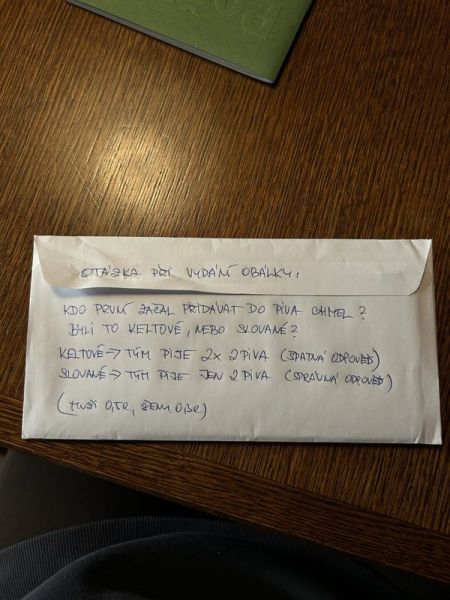 OTÁZKA PŘI VYDÁNÍ OBÁLKY:
KDO PRVNÍ ZAČAL PŘIDÁVAT DO PIVA CHMEL?
BYLI TO KELTOVÉ, NEBO SLOVANÉ?
KELTOVÉ → TÝM PIJE 2x 2 PIVA (ŠPATNÁ ODPOVĚĎ)
SLOVANÉ → TÝM PIJE JEN 2 PIVA (SPRÁVNÁ ODPOVĚĎ)
(MUŽI ŽENY